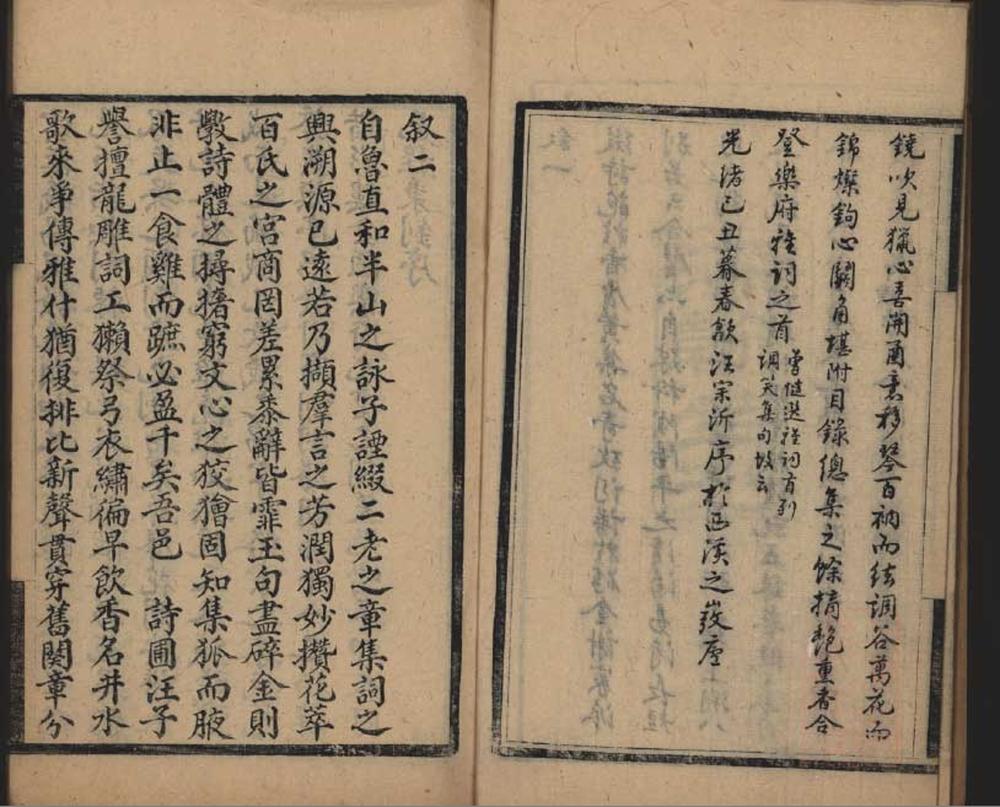 鐃吹見獵心喜閒爾意移琴百衲而待調谷萬花而
錦燦鉤心鬬角堪附目錄總集之餘摘艷熏香合
登樂府雅詞之首
曾慥選雅詞首列
調笑集句故云
光緒己丑暮春歙汪宗沂序於西溪之
叙二
自魯直和半山之詠子諲綴二老之章集詞之
興溯源已遠若乃擷羣言之芳潤獨妙攢花萃
百氏之宮商罔差累黍辭皆霏玉句盡碎金則
斅詩體之撏撦窮文心之狡獪固知集狐而腋
非止一食雞而蹠必盈千矣吾邑 詩圃汪子
譽擅龍雕詞工獺祭弓衣繡徧早飲香名井水
歌來爭傳雅什猶復排比新聲貫穿舊闋章分